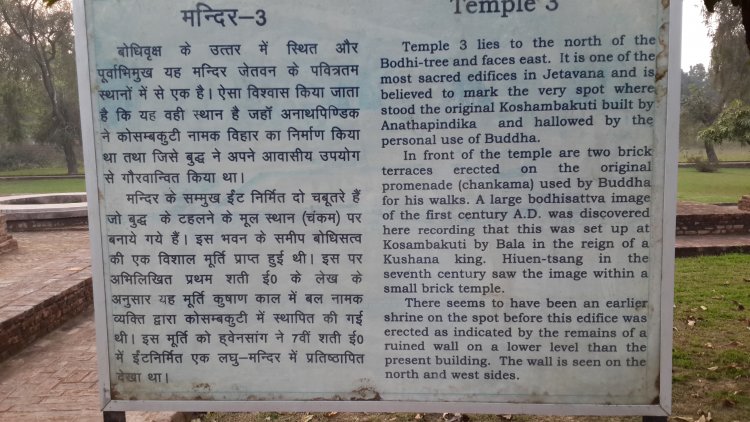 मन्दिर-3
बोधिवृक्ष के उत्तर में स्थित और
पूर्वाभिमुख यह मन्दिर जेतवन के पवित्रतम
स्थानों में से एक है। ऐसा विश्वास किया जाता
है कि यह वही स्थान है जहाँ अनाथपिण्डिक
ने कोसम्बकुटी नामक विहार का निर्माण किया
था तथा जिसे बुद्ध ने अपने आवासीय उपयोग
से गौरवान्वित किया था।
मन्दिर के सम्मुख ईंट निर्मित दो चबूतरे हैं
जो बुद्ध के टहलने के मूल स्थान (चंकम) पर
बनाये गये हैं। इस भवन के समीप बोधिसत्व
की एक विशाल मूर्ति प्राप्त हुई थी। इस पर
अभिलिखित प्रथम शती ई0 के लेख के
अनुसार यह मूर्ति कुषाण काल में बल नामक
व्यक्ति द्वारा कोसम्बकटी में स्थापित की गई
थी। इस मूर्ति को ह्वेनसांग ने 7वीं शती ई0
में ईंटनिर्मित एक लघु-मन्दिर में प्रतिष्ठापित
देखा था।
Temple 3
Temple 3 lies to the north of the
Bodhi-tree and faces east. It is one of the
most sacred edifices in Jetavana and is
believed to mark the very spot where
stood the original Koshambakuti built by
Anathapindika and hallowed by the
personal use of Buddha.
In front of the temple are two brick
terraces erected on the original
promenade (chankama) used by Buddha
for his walks. A large bodhisattva image
of the first century A.D. was discovered
here recording that this was set up at
Kosambakuti by Bala in the reign of a
Kushana king. Hiuen-tsang in the
seventh century saw the image within a
small brick temple.
There seems to have been an earlier
shrine on the spot before this edifice was
erected as indicated by the remains of a
ruined wall on a lower level than the
present building. The wall is seen on the
north and west sides.